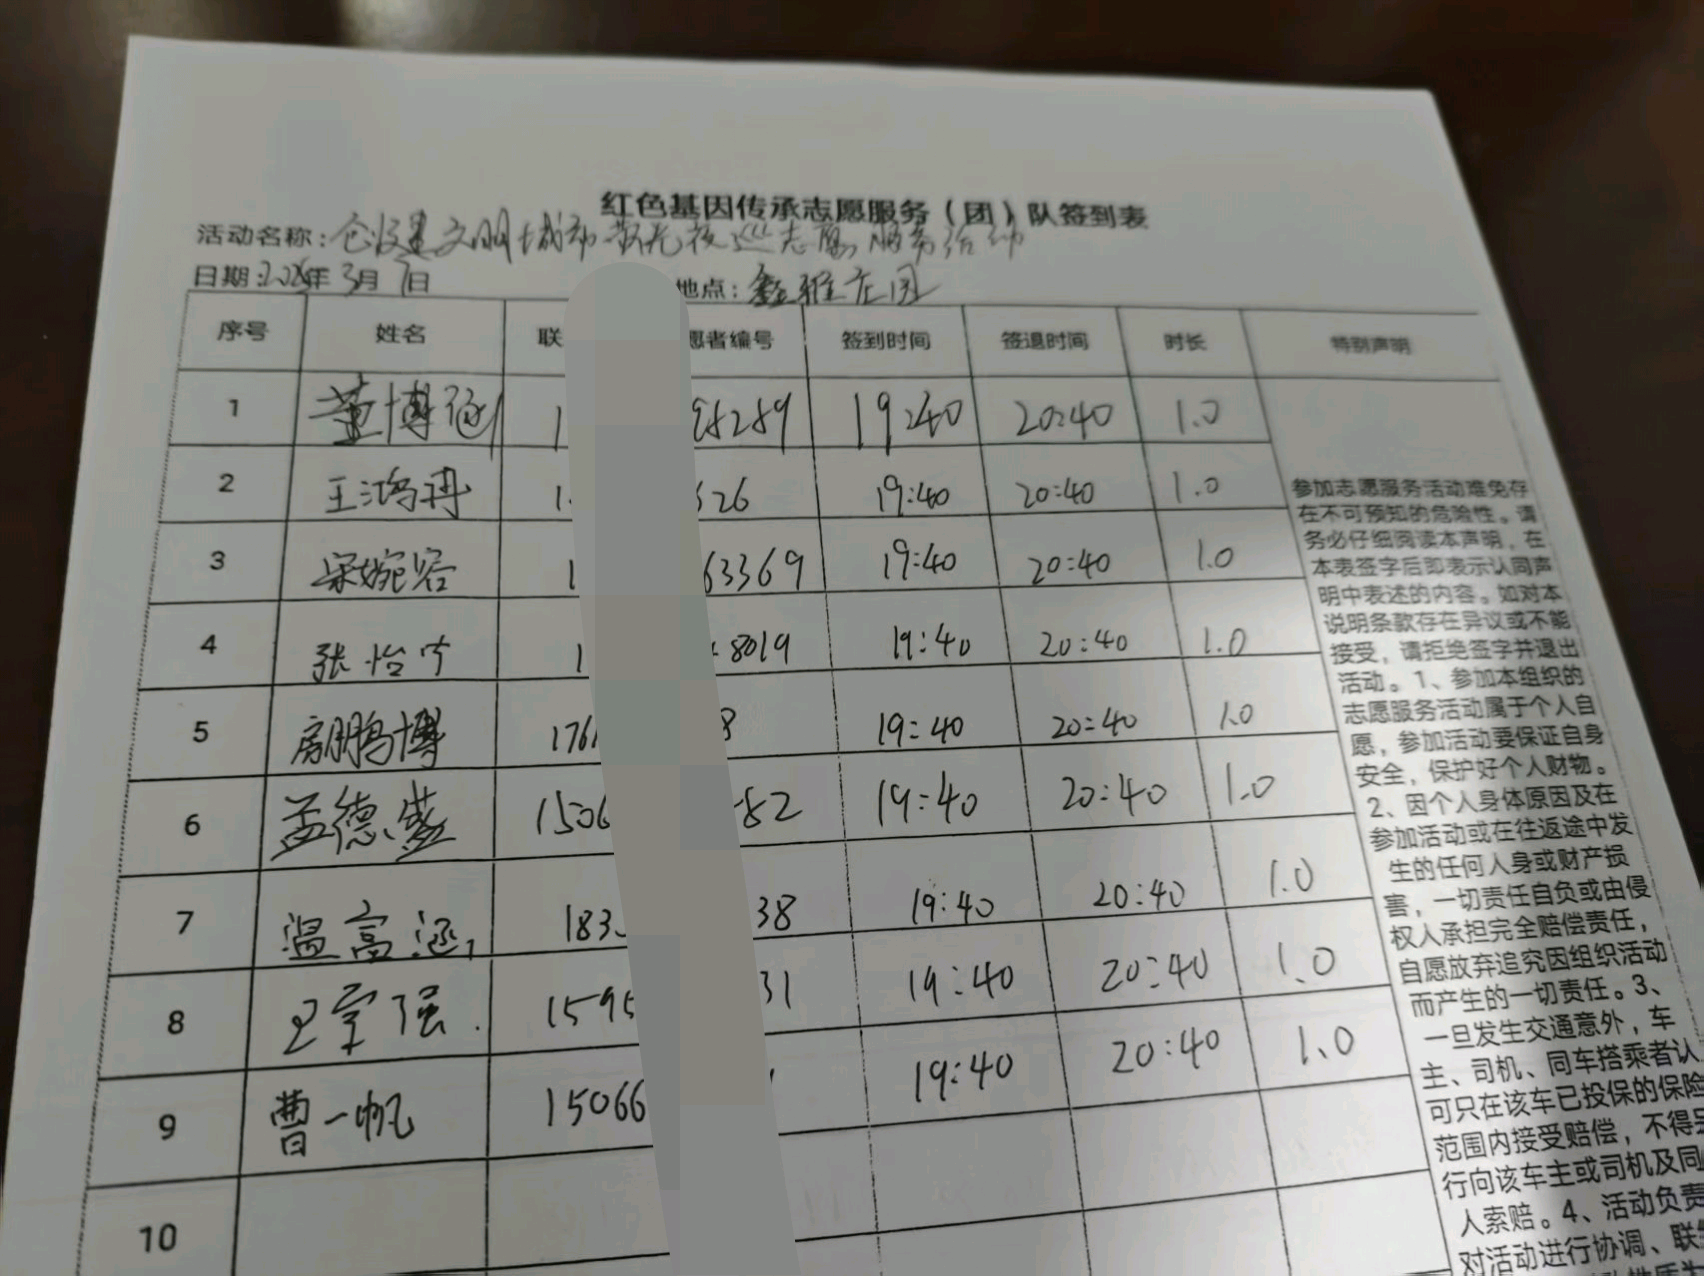 红色基因传承志愿服务（团）队签到表
活动名称：创建文明城市 荧光夜巡志愿服务活动
日期：年 3月 7日 地点：鑫雅庄园
序号 姓名 联 愿者编号 签到时间 签退时间 时长 特别声明
1 董博 1 98289 19:40 20:40 1.0
2 王鸿冉 1 326 19:40 20:40 1.0
3 宋婉容 1 63369 19:40 20:40 1.0
4 张怡宁 1 8019 19:40 20:40 1.0
5 房鹏博 176 8 19:40 20:40 1.0
6 孟德盛 1506 82 19:40 20:40 1.0
7 温高涵 183 38 19:40 20:40 1.0
8 王宇强 1595 31 19:40 20:40 1.0
9 曹一帆 15066 19:40 20:40 1.0
10
参加志愿服务活动难免存
在不可预知的危险性。请
务必仔细阅读本声明，在
本表签字后即表示认同声
明中表述的内容。如对本
说明条款存在异议或不能
接受，请拒绝签字并退出
活动。1、参加本组织的
志愿服务活动属于个人自
愿，参加活动要保证自身
安全，保护好个人财物。
2、因个人身体原因及在
参加活动或在往返途中发
生的任何人身或财产损
害，一切责任自负或由侵
权人承担完全赔偿责任，
自愿放弃追究因组织活动
而产生的一切责任。3、
一旦发生交通意外，车
主、司机、同车搭乘者认
可只在该车已投保的保险
范围内接受赔偿，不得另
行向该车主或司机及同
人索赔。4、活动负责
对活动进行协调、联